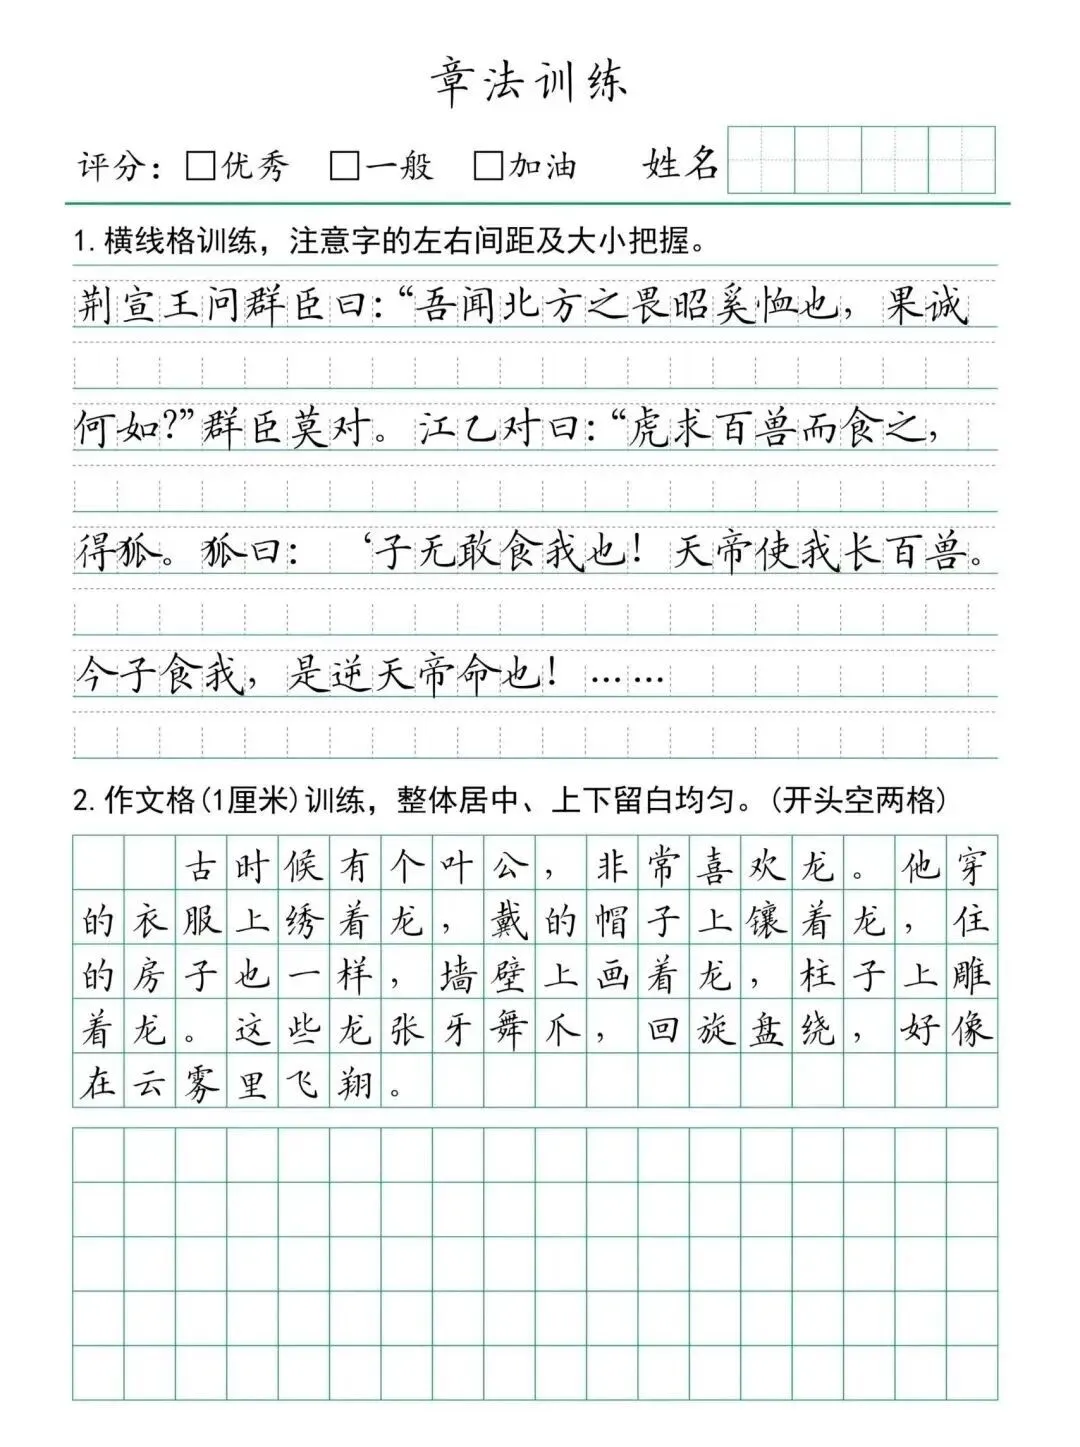 章法训练
评分：□优秀 □一般 □加油 姓名
1.横线格训练，注意字的左右间距及大小把握。
荆宣王问群臣曰：“吾闻北方之畏昭奚恤也，果诚
何如？”群臣莫对。江乙对曰：“虎求百兽而食之，
得狐。狐曰：‘子无敢食我也！天帝使我长百兽。
今子食我，是逆天帝命也！……
2.作文格(1厘米)训练，整体居中、上下留白均匀。(开头空两格)
古时候有个叶公，非常喜欢龙。他穿
的衣服上绣着龙，戴的帽子上镶着龙，住
的房子也一样，墙壁上画着龙，柱子上雕
着龙。这些龙张牙舞爪，回旋盘绕，好像
在云雾里飞翔。